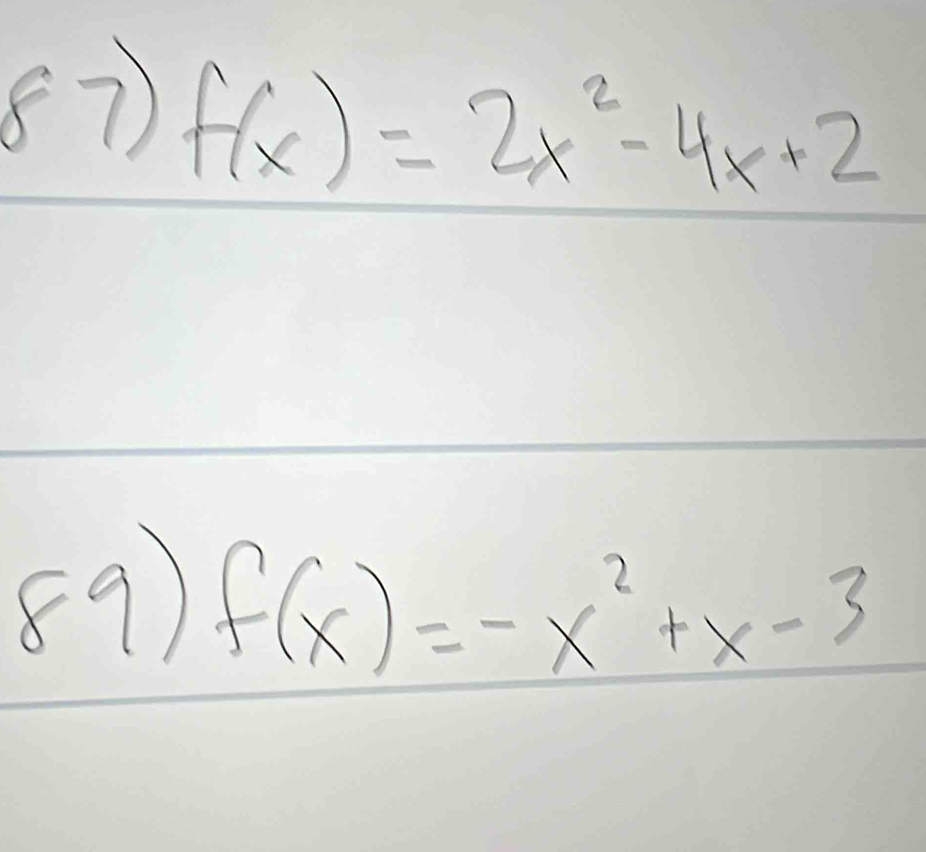 87) f(x) = 2x² - 4x + 2
89) f(x) = -x² + x - 3